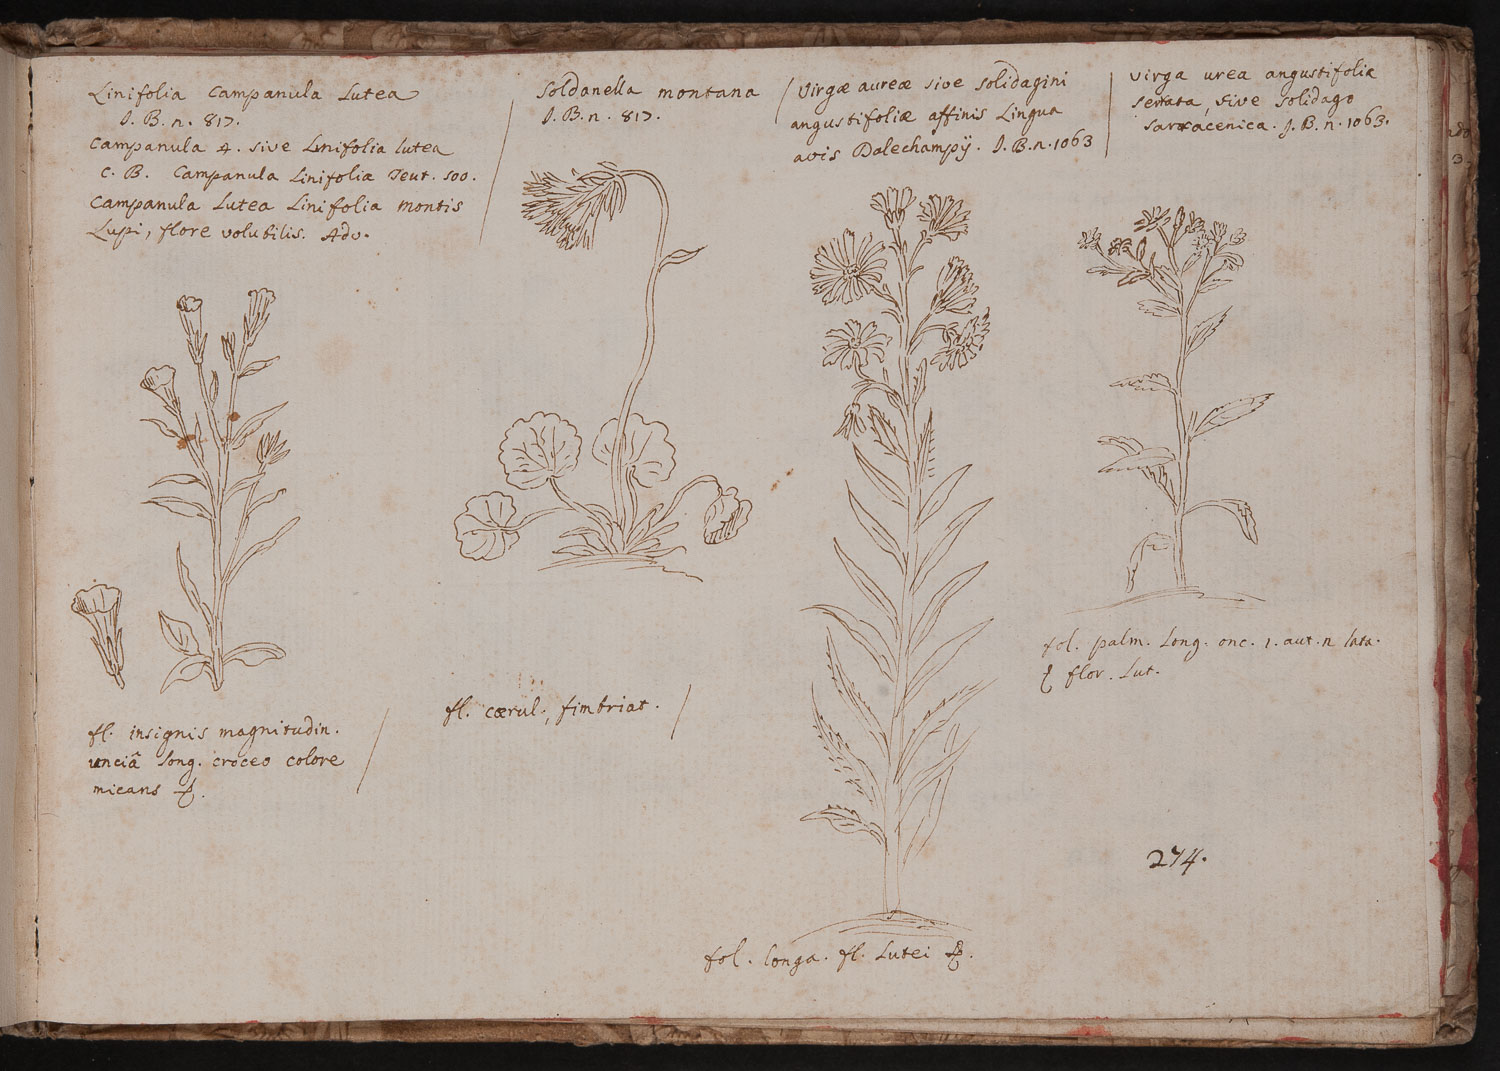 Linifolia Campanula Lutea
J. B. n. 817.
Campanula 4. sive Linifolia lutea
C. B. Campanula Linifolia Teut. 500.
Campanula Lutea Linifolia montis
Lupi, flore volubilis. Adv.
fl. insignis magnitudin.
unciã long. croceo colore
micans
Soldanella montana
J. B. n. 817.
fl. cærul., fimbriat.
Virgæ aureæ sive Solidagini
angustifoliæ affinis Lingua
avis Dalechampij. J. B. n. 1063
fol. longa. fl. Lutei
Virga urea angustifolia
serrata, sive Solidago
Sarracenica. J. B. n. 1063.
fol. palm. Long. onc. 1. aut. n lata.
flor. Lut.
274.